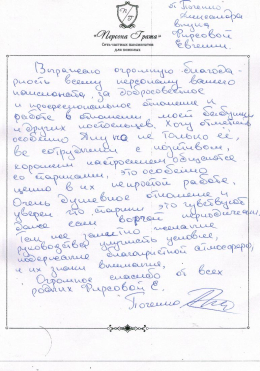 «Перспектива»
Сеть частных пансионатов
для пожилых
от Поченко
Александра
внука
Фирсовой
Евгении.
Выражаю огромную благодар-
ность всему персоналу вашего
пансионата, за добросовестное
и профессиональное отношение и
работе в отношении моей бабушки
и других постояльцев. Хочу отметить
особенно не только ее,
все сотрудники с позитивом,
хорошим настроением общаются
со стариками, это особенно
ценно в их непростой работе.
Очень душевное отношение и
уверен что старики это чувствуют
даже если ворчат периодически.
Так же заметно желание
руководства улучшить условия,
поддержание благоприятной атмосферы,
и их знаки внимания.
Огромное спасибо от всех
родных Фирсовой Е.
Поченко